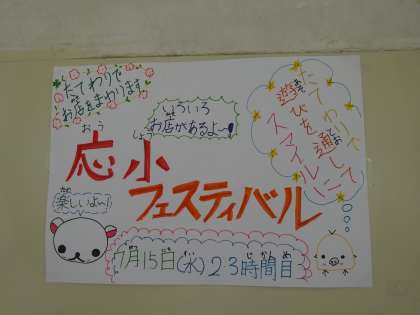 たてわりで
お店をまわります。
いろいろ
お店があるよ〜
たてわりで
遊びを通して
スマイルに
おう しょう
応小
フェスティバル
楽しいよ〜！
7月15日(水)2.3時間目